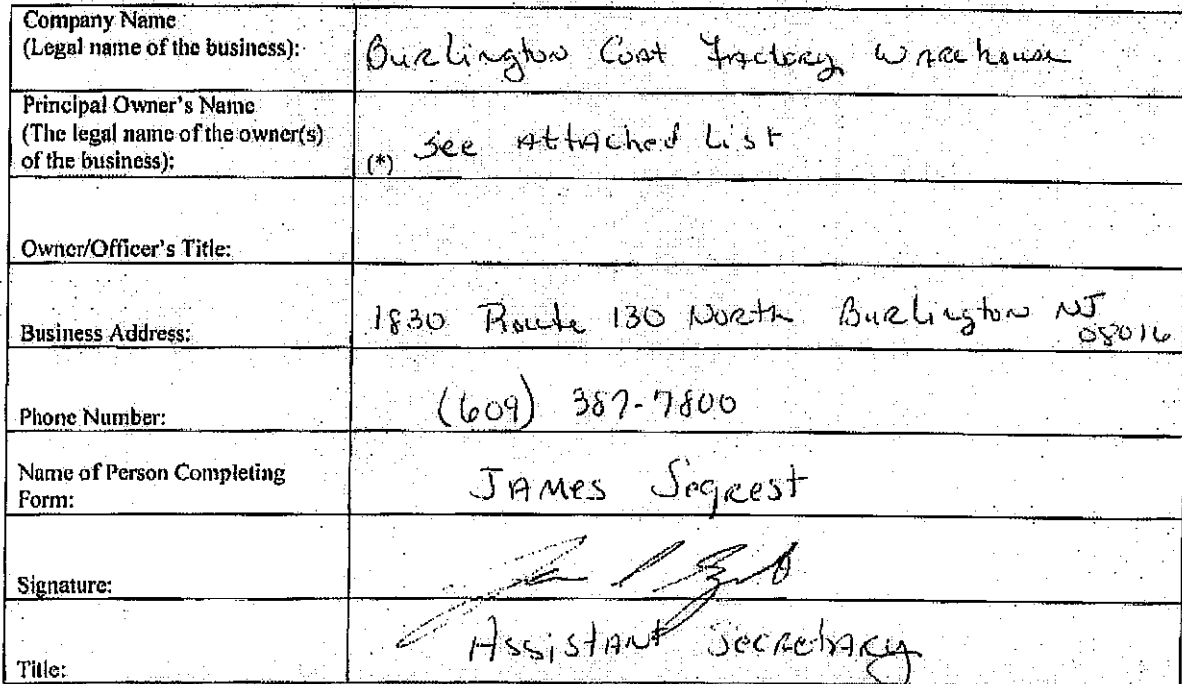 Company Name
(Legal name of the business):
Burlington Coat Factory Warehouse
Principal Owner's Name
(The legal name of the owner(s)
of the business):
(*) See Attached List
Owner/Officer's Title:
Business Address:
1830 Route 130 North Burlington NJ
08016
Phone Number:
(609) 387-7800
Name of Person Completing
Form:
James Segrest
Signature:
Title:
Assistant Secretary